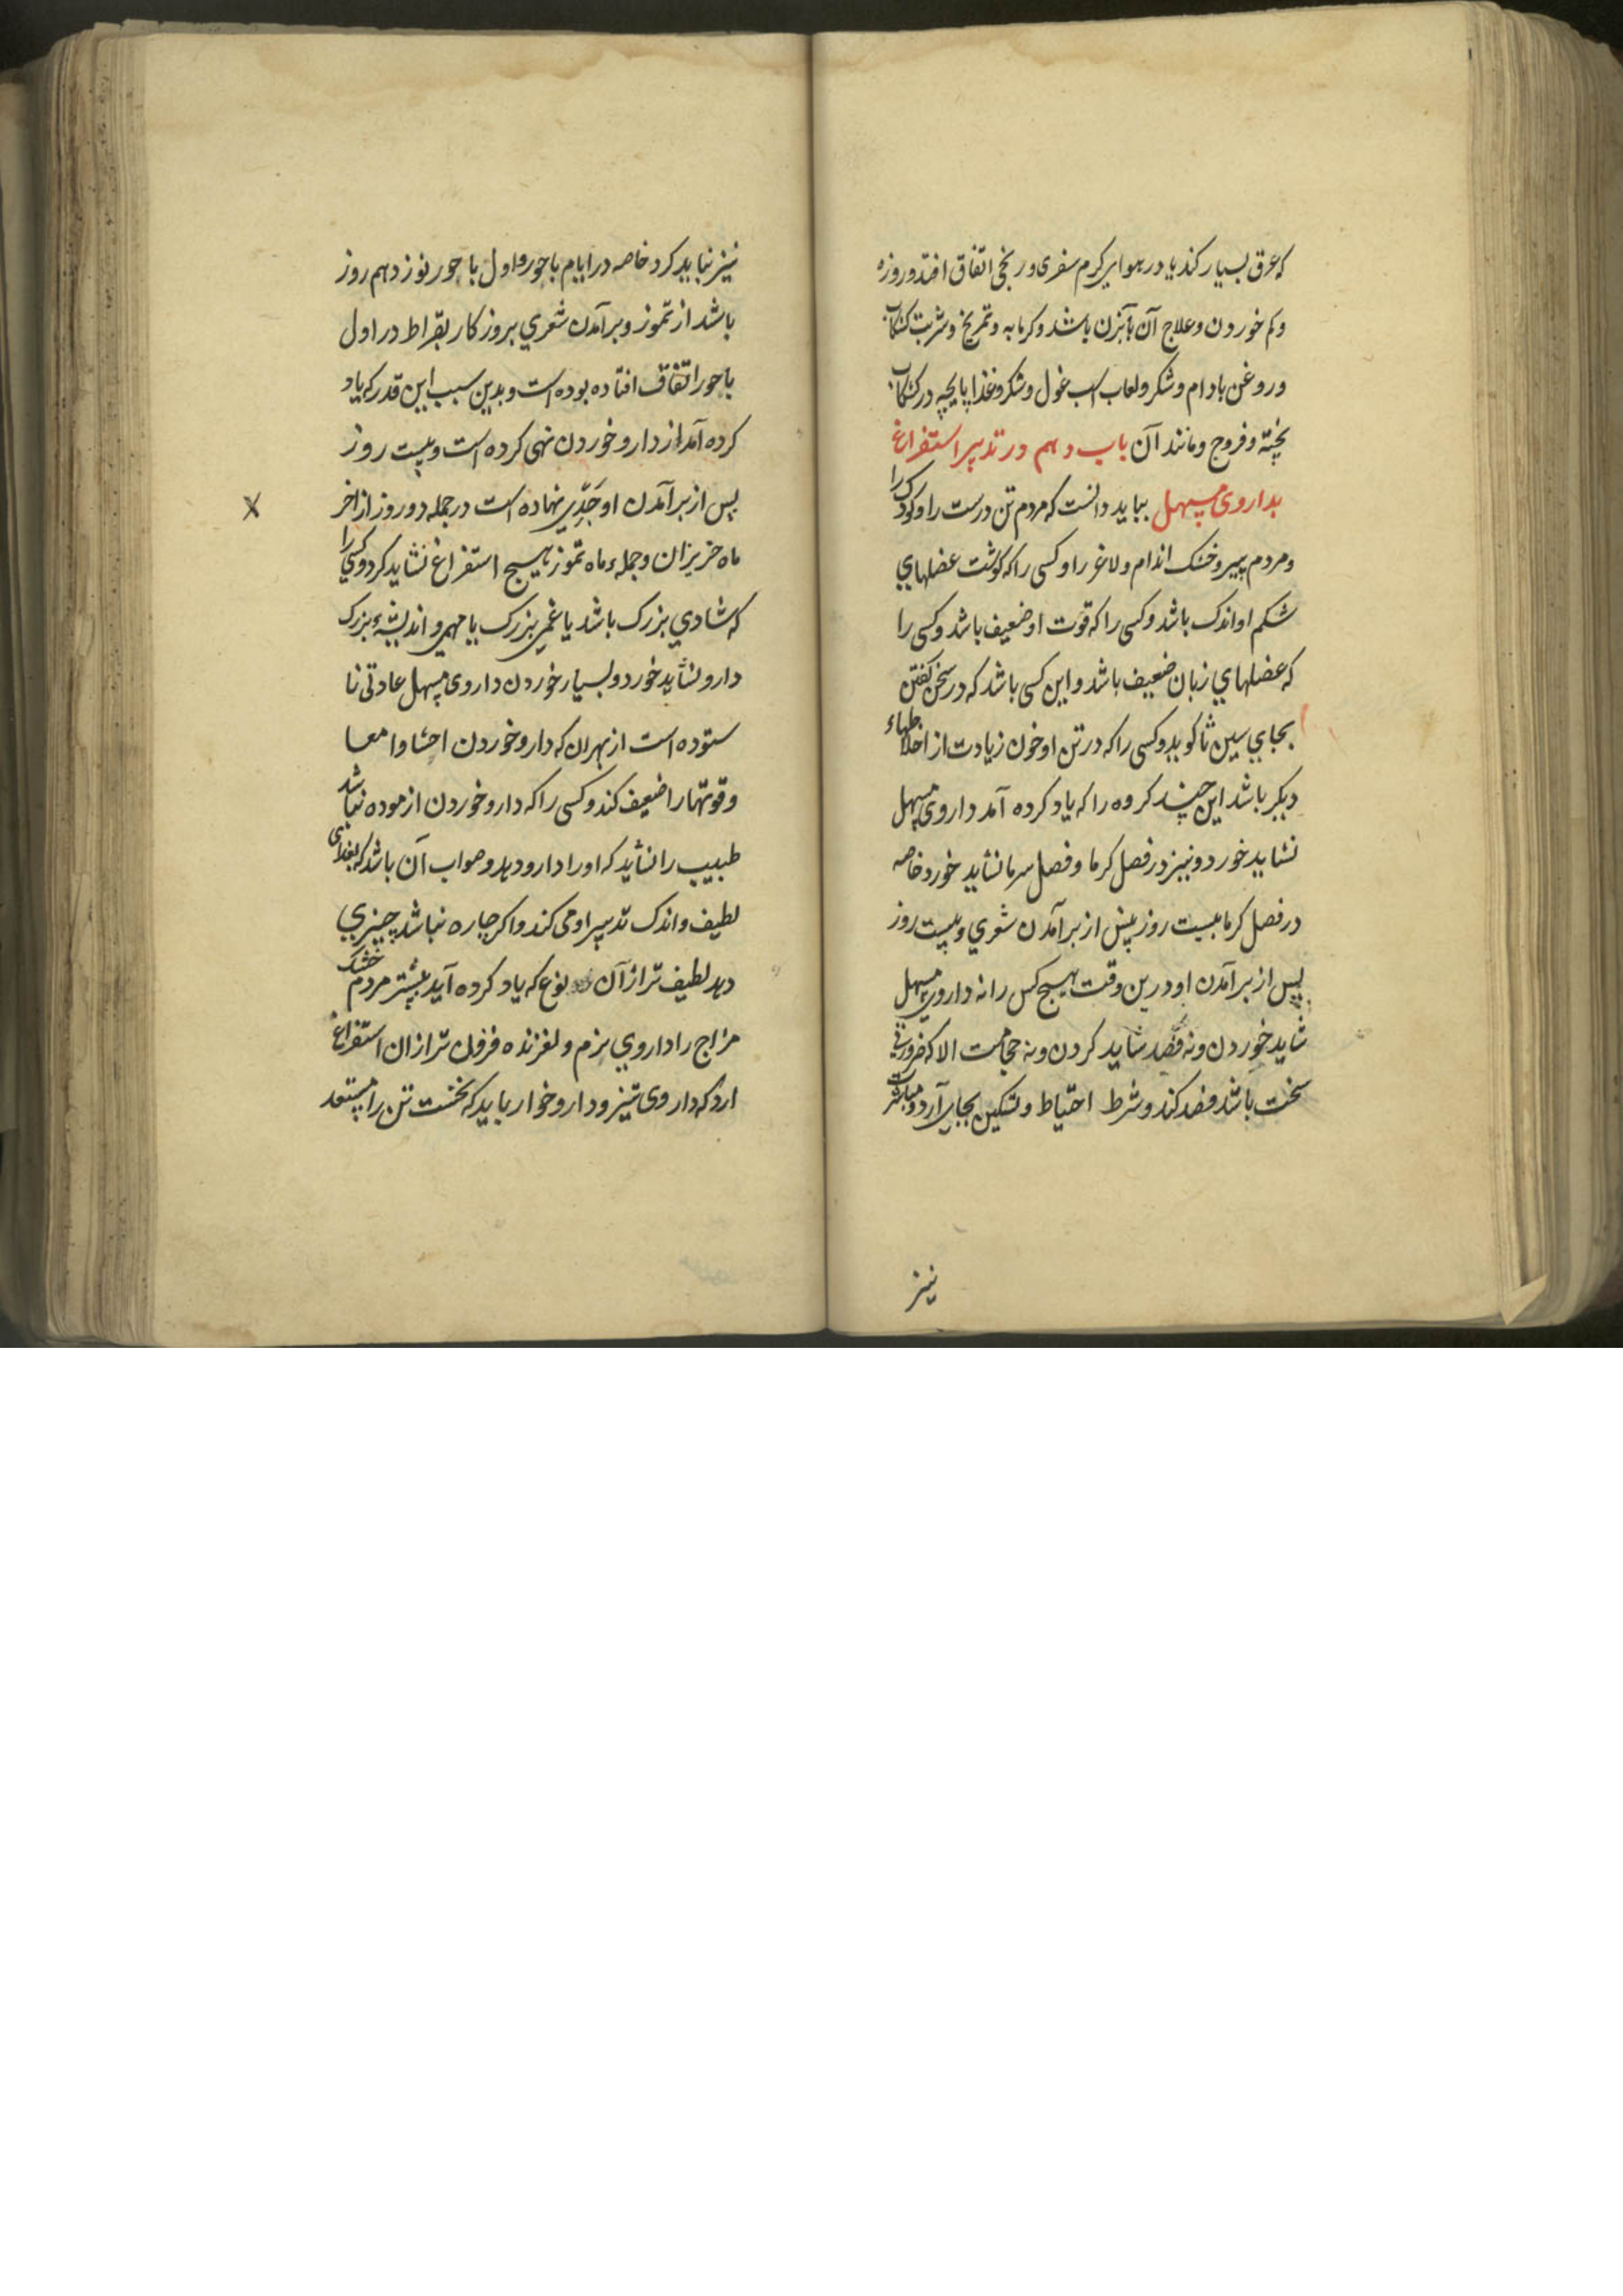 که عرق بسیار کند یا در هوای کرم سفری و رنجی اتفاق افتد و روزه
و کم خوردن و علاج آن آبزن باشد و کرمابه و تمریخ و شربت کشکاب
و روغن بادام و شکر و لعاب اسب غول و شکر و غذا پایچه در کشکاب
پخته و فروج و مانند آن باب دهم در تدبیر استفراغ
بداروی مسهل بباید دانست که مردم تن درست را و کودک را
و مردم پیر و خشک اندام و لاغر را و کسی را که کوشت عضلهاي
شکم او اندک باشد و کسی را که قوت او ضعیف باشد و کسی را
که عضلهاي زبان ضعیف باشد و این کسی باشد که در سخن کفتن
بجاي سین ثا کوید و کسی را که در تن او خون زیادت از اخلاطهاء
دیکر باشد این چند کروه را که یاد کرده آمد داروی مسهل
نشاید خورد و نیز در فصل کرما و فصل سرما نشاید خورد خاصه
در فصل کرما بیست روز پیش از برآمدن شعري و بیست روز
پس از برآمدن او درین وقت هیچ کس را نه داروي مسهل
شاید خوردن و نه فصد شاید کردن و نه حجامت الا که ضرورتي
سخت باشد فصد کند و شرط احتیاط و تسکین بجاي آرد و مباشرت
نیز
نیز نباید کرد خاصه در ایام باحور و اول باحور نوزدهم روز
باشد از تموز و برآمدن شعري بروزکار بقراط در اول
باحور اتفاق افتاده بوده است و بدین سبب این قدر که یاد
کرده آمد از دارو خوردن نهی کرده است و بیست روز
پس از برآمدن او حَدّي نهاده است در جمله دو روز از اخر
ماه حزیران و جملهء ماه تموز هیچ استفراغ نشاید کرد و کسي را
که شادي بزرک باشد یا غمي بزرک یا مهمي و اندیشهٔ بزرک
دارو نشاید خورد و بسیار خوردن داروی مسهل عادتی نا
ستوده است از بهر ان که دارو خوردن احشا و امعا
و قوتها را ضعیف کند و کسی را که دارو خوردن ازموده نباشد
طبیب را نشاید که او را دارو دهد و صواب آن باشد که بغذای
لطیف و اندک تدبیر او می کند و اکر چاره نباشد چیزي
دهد لطیف تر از آن نوع که یاد کرده آید بیشتر مردم خشک
مزاج را داروي نرم و لغزنده فزون تر از ان استفراغ
ارد که داروی تیز و دارو خوار باید که نخست تن را مستعد